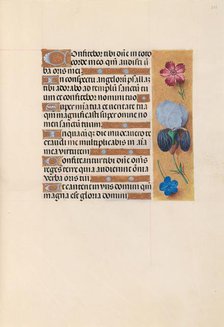 Confitebor tibi dñe in toto
corde meo qm̃ audisti u
ba oris mei
In conspectu angelorũ psallam
tibi adorabo ad templũ sanctum
tuum et confitebor nomini tuo
quam
magnificasti super omne no
men sanctũ tuum
In quacũq; die inuocauero te
exaudi me multiplicabis in aĩa
mea uirtutem
Confiteantur tibi dñe omes
reges terre quia audierunt õnia
uerba oris tui
Et cantent in uiis domini qm̃
magna est gloria domini